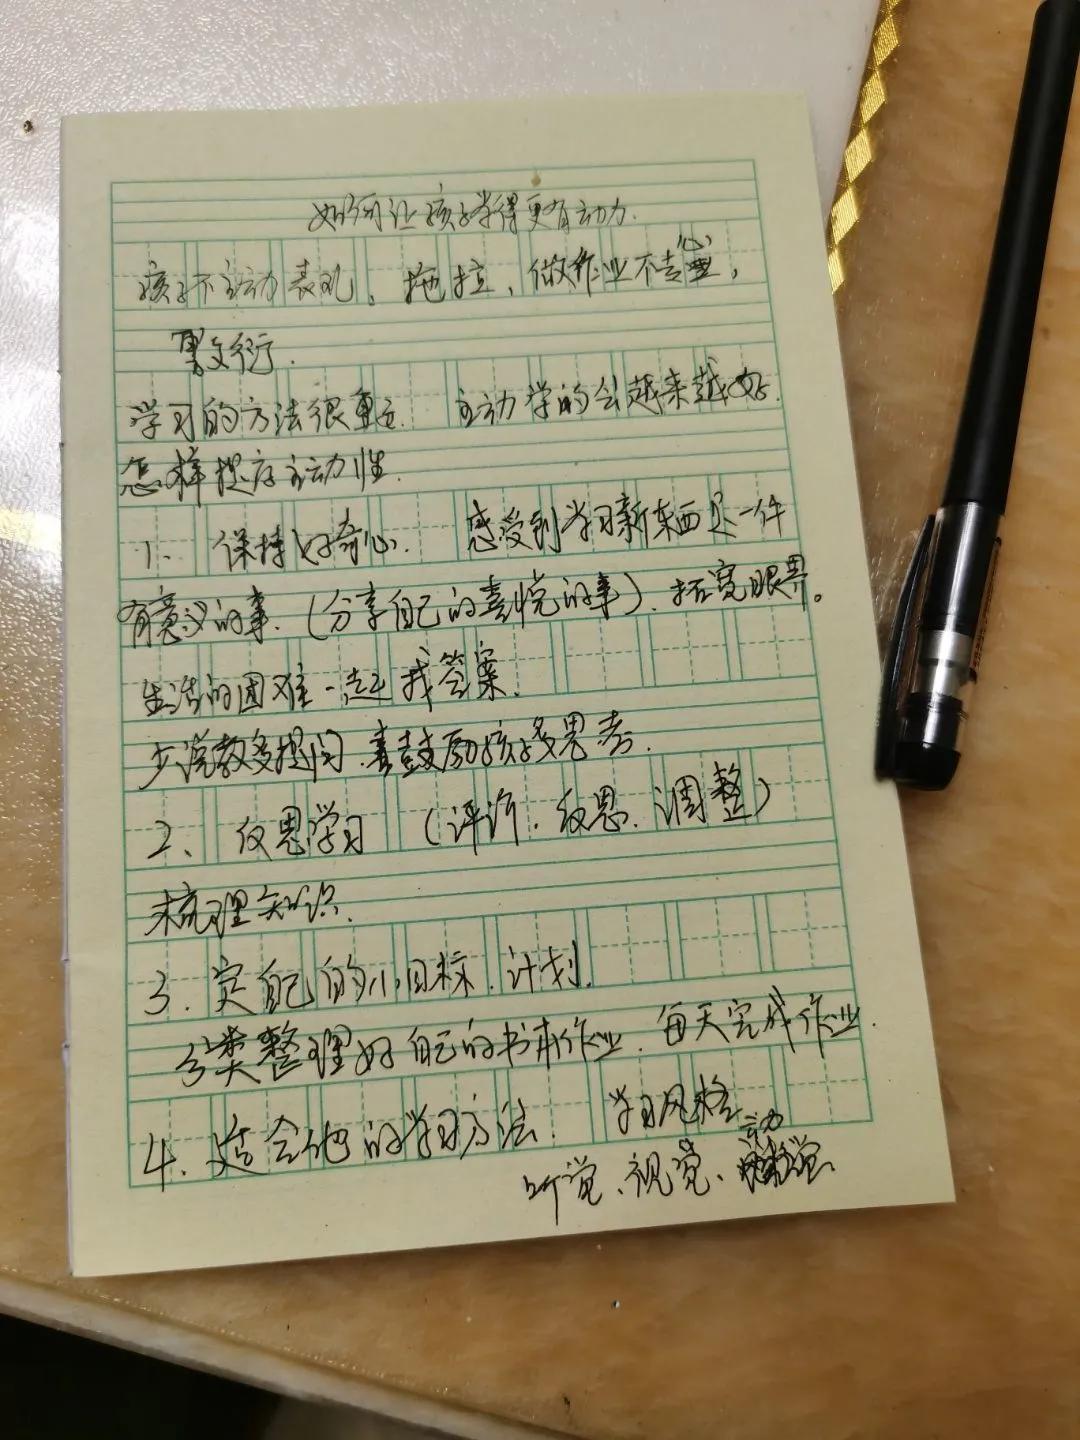 如何让孩子学得更有动力.
孩子不主动表现、拖拉、做作业不专心,
敷衍.
学习的方法很重要. 主动学的会越来越好.
怎样提高主动性.
1、保持好奇心. 感受到学习新东西是一件
有意义的事.(分享自己的喜悦的事)、拓宽眼界。
生活的困难一起找答案.
少说教多提问.鼓励孩子多思考.
2、反思学习 (评价.反思.调整)
梳理知识.
3.定自己的小目标.计划.
分类整理好自己的书本作业.每天完成作业.
4.适合他的学习方法. 学习风格
听觉、视觉、动觉.